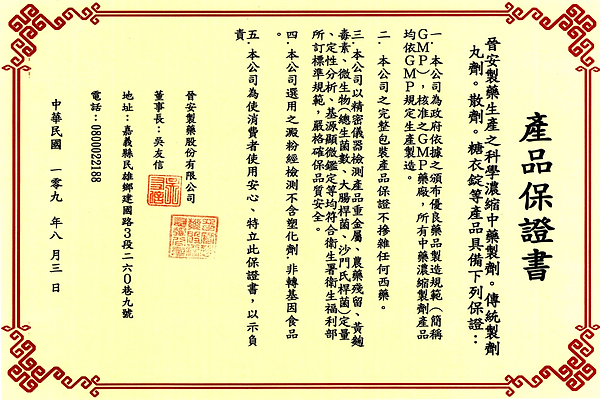 產品保證書
晉安製藥生產之科學濃縮中藥製劑。傳統製劑
丸劑。散劑。糖衣錠等產品具備下列保證：
一. 本公司為政府依據之頒布優良藥品製造規範（簡稱
GMP），核准之GMP藥廠，所有中藥濃縮製劑產品
均依GMP規定生產製造。
二. 本公司之完整包裝產品保證不摻雜任何西藥。
三. 本公司以精密儀器檢測產品重金屬、農藥殘留、黃麴
毒素、微生物(總生菌數、大腸桿菌、沙門氏桿菌)定量
、定性分析、基源顯微鑑定等均符合衛生署衛生福利部
所訂標準規範，嚴格確保品質安全。
四. 本公司選用之澱粉經檢測不含塑化劑.非轉基因食品
。
五. 本公司為使消費者使用安心、特立此保證書，以示負
責。
晉安製藥股份有限公司
董事長：吳友信
地址：嘉義縣民雄鄉建國路3段二六0巷九號
電話：0800022188
中華民國 一零九 年 八 月 三 日